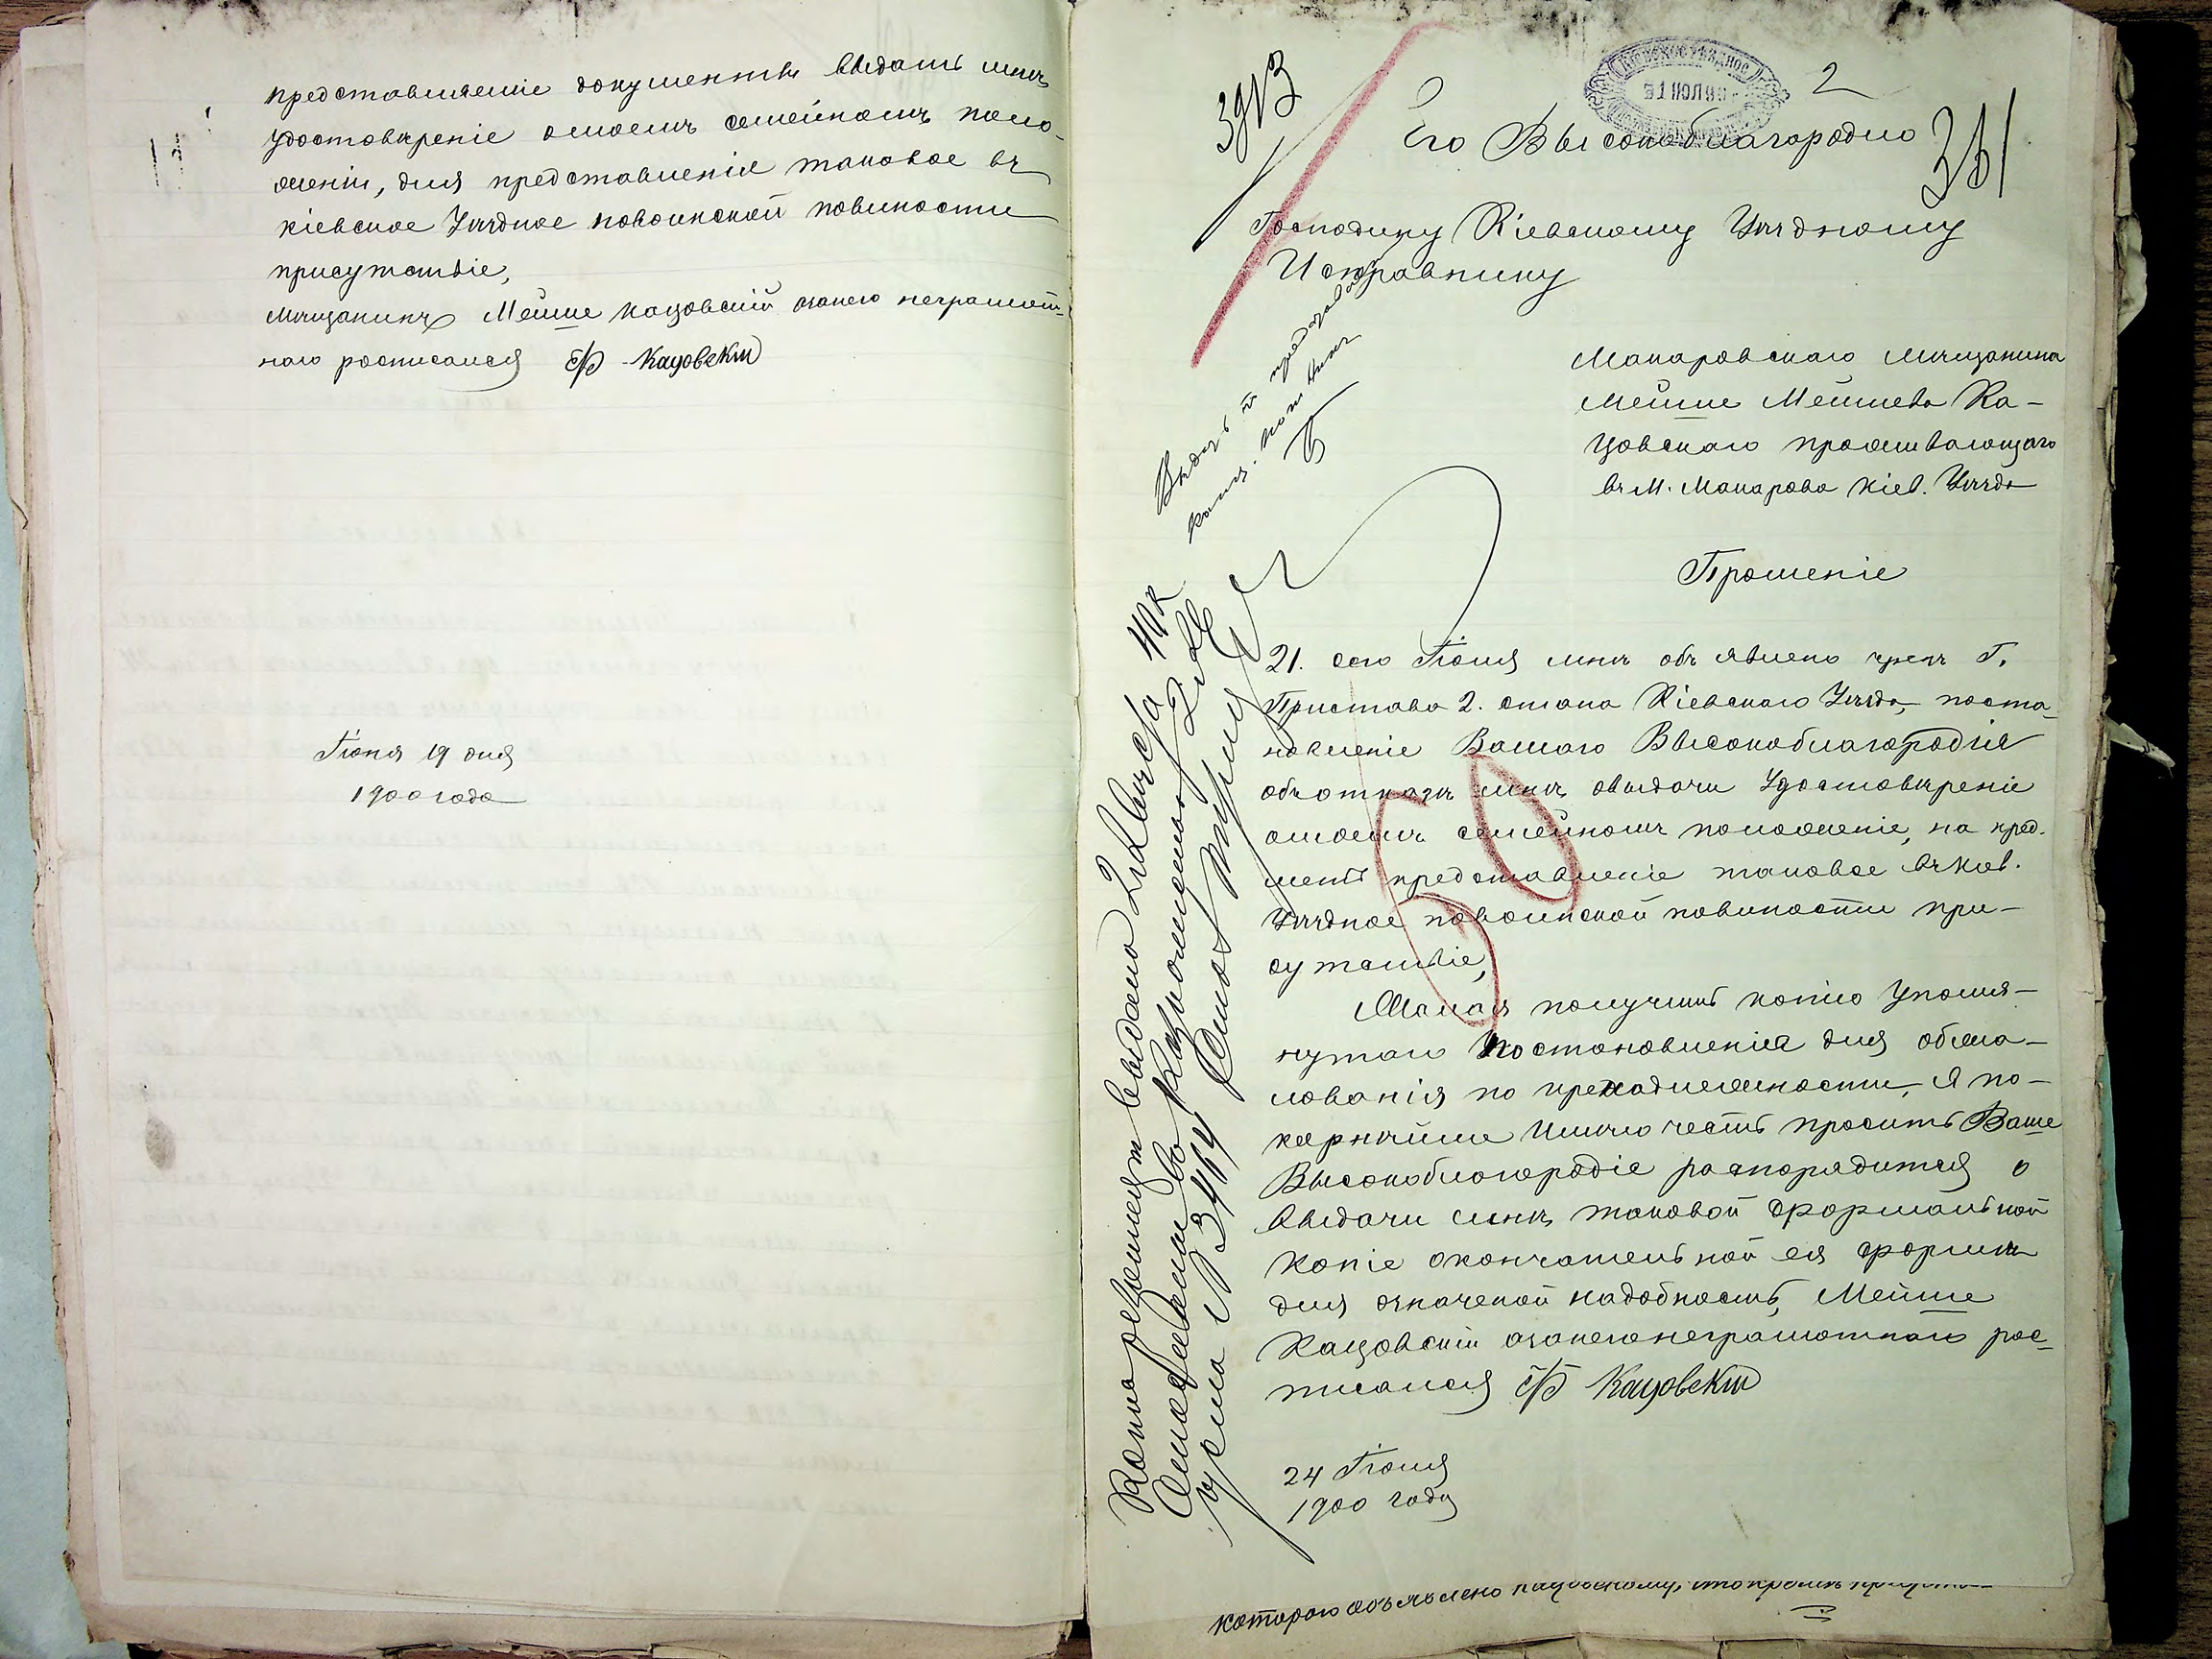 представляеміе документы выдать мнѣ
удостовѣреніе омоемъ семейномъ поло-
женіи, для представленія таковое въ
кіевское Уѣздное повоинской повиности
присутствіе,
Мѣщанинъ Мейше Кацовскій занего неграмот-
наго росписался Кацовскій
Іюня 19 дня
1900 года
2
Его Высокоблагородію
Господину Кіевскому Уѣздному
Исправнику
Макаровскаго мѣщанина
Мейше Мейшева Ка-
цовскаго проживающаго
въ М. Макарова Кіев. Уѣзда
Прошеніе
21. сего Іюня мнѣ объявлено чрезъ Г.
Пристава 2. стана Кіевскаго Уѣзда, поста-
новленіе Вашего Высокоблагородія
объотказѣ мнѣ овыдачи Удостовѣреніе
омоемъ семейномъ положеніе, на пред-
метъ представленіе таковое въ Кіев.
Уѣздное повоинской повиности при-
сутствіе,
Желая получить копію Упомя-
нутаго постановленія для обжа-
лованія по принадлежности, Я по-
корнѣйше Имѣю честь просить Ваше
Высокоблагородіе распорядится о
выдачи мнѣ таковой формальной
копіе окончательной ея формы
для означеной надобность, Мейше
Кацовскій занегонеграмотнаго рос-
писался Кацовскій
24 Іюня
1900 года
Копію выдано 2 Августа
№ 3464
котораго объявлено Кацовскому, что кромѣ